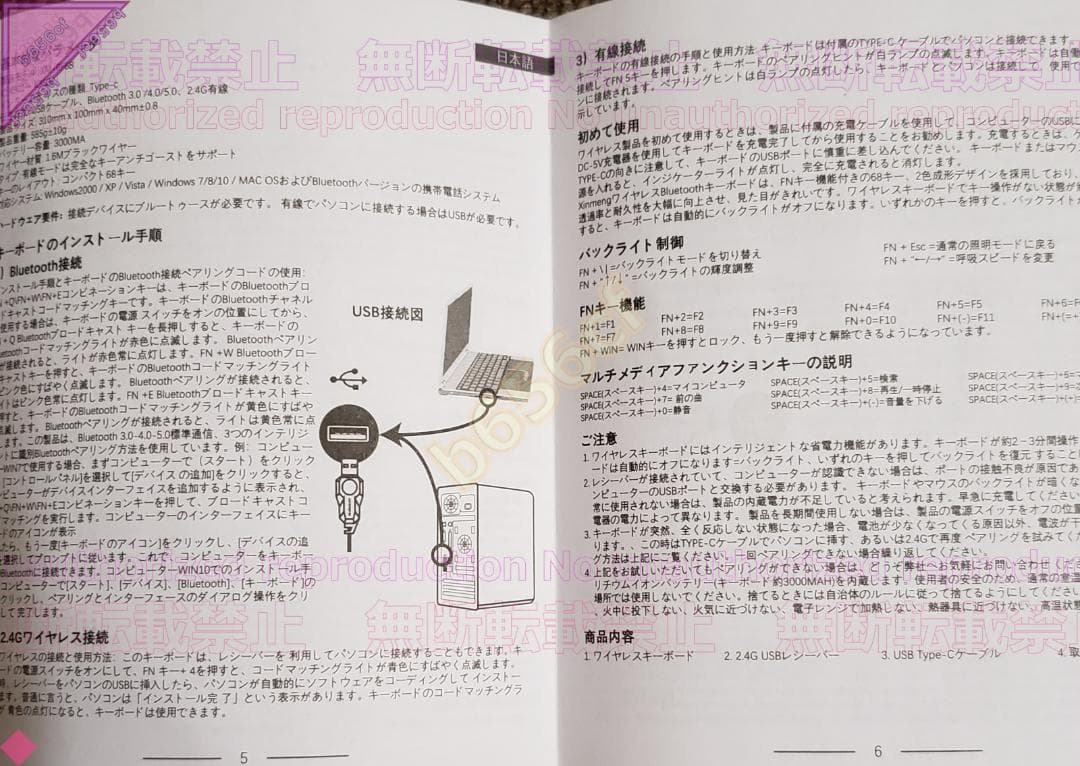 日本語
の種類 Type-c
ケーブル、Bluetooth 3.0/4.0/5.0、2.4G有線
310mm x 100mm x 40mm±0.8
製品重量: 585g±10g
バッテリー容量: 3000MA
ワイヤー材質 1.6Mブラックワイヤー
タイプ 有線モードは完全なキーアンチゴーストをサポート
キーのレイアウト: コンパクト 68キー
対応システム: Windows2000 / XP / Vista / Windows 7/8/10 / MAC OSおよびBluetoothバージョンの携帯電話システム
ードウェア要件: 接続デバイスにブルートゥースが必要です。 有線でパソコンに接続する場合はUSBが必要です。
キーボードのインストール手順
) Bluetooth接続
ンストール手順とキーボードのBluetooth接続ペアリングコードの使用:
N +Q\FN+W\FN+Eコンビネーションキーは、キーボードのBluetoothブロ
ドキャストコードマッチングキーです。キーボードのBluetoothチャネル
使用する場合は、キーボードの電源 スイッチをオンの位置にしてから、
N + Q Bluetoothブロードキャスト キーを長押しすると、キーボードの
luetoothコードマッチングライトが赤色に点滅します。 Bluetoothペアリン
が接続されると、ライトが赤色常に点灯します。FN +W Bluetoothブロー
キャストキーを押すと、キーボードのBluetoothコードマッチングライト
ピンク色にすばやく点滅します。 Bluetoothペアリングが接続されると、
イトはピンク色常に点灯します。FN +E Bluetoothブロードキャストキー
押すと、キーボードのBluetoothコードマッチングライトが黄色にすばや
点滅します。Bluetoothペアリングが接続されると、ライトは黄色常に点
します。この製品は、Bluetooth 3.0-4.0-5.0標準通信、3つのインテリジ
ントに識別Bluetoothペアリング方法を使用しています。例: コンピュー
ーWIN7で使用する場合、まずコンピューターで（スタート）をクリック
[コントロールパネル]を選択して[デバイス の追加]をクリックすると、
ピューターがデバイスインターフェイスを追加するように表示され、
+Q\FN+W\FN+Eコンビネーションキーを押して、ブロードキャスト コ
マッチングを実行します。コンピューターのインターフェイスにキー
ードのアイコンが表示
たら、もう一度[キーボードのアイコン]をクリックし、[デバイスの追
を選択してプロンプトに従います。これで、コンピューターをキーボー
Bluetoothに接続できます。コンピューターWIN10でのインストール手
ンピューターで[スタート]、[デバイス]、[Bluetooth]、[キーボード]の
クリックし、ペアリングとインターフェースのダイアログ操作をクリ
して完了します。
USB接続図
2.4Gワイヤレス接続
ワイヤレスの接続と使用方法: このキーボードは、レシーバーを 利用してパソコンに接続することもできます。キ
ードの電源スイッチをオンにして、FN キー+ 4を押すと、コードマッチングライトが青色にすばやく点滅します。
時、レシーバーをパソコンのUSBに挿入したら、パソコンが自動的にソフトウェアをコーディングしてインストー
ます。普通に言うと、パソコンは「インストール完 了」という表示があります。キーボードのコードマッチングラ
が 青色の点灯になると、キーボードは使用できます。
5
3) 有線接続
キーボードの有線接続の手順と使用方法: キーボードは付属のTYPE-C ケーブルでパソコンと接続できます。
接続してFN 5キーを押します。キーボードのペアリングヒントが白ランプの点滅します。キーボードは自動
ンに接続されます。ペアリングヒントは白ランプの点灯したら、キーボードとパソコンは接続して、使用で
示しています。
初めて使用
ワイヤレス製品を初めて使用するときは、製品に付属の充電ケーブルを使用して、コンピューターのUSBに
DC-5V充電器を使用してキーボードを充電完了してから使用することをお勧めします。充電するときは、ケ
TYPE-Cの向きに注意して、キーボードのUSBポートに慎重に差し込んでください。 キーボードまたはマウ
源を入れると、インジケーターライトが点灯し、完全に充電されると消灯します。
XinmengワイヤレスBluetoothキーボードは、FNキー機能付きの68キー、2色成形デザインを採用しており、
透過率と耐久性を大幅に向上させ、見た目がきれいです。ワイヤレスキーボードでキー操作がない状態が
すると、キーボードは自動的にバックライトがオフになります。いずれかのキーを押すと、バックライトが
バックライト制御
FN + \ | =バックライトモードを切り替え
FN + Esc =通常の照明モードに戻る
FN + "↑/↓" =バックライトの輝度調整
FN + "←/→" =呼吸スピードを変更
FNキー機能
FN+1=F1 FN+2=F2 FN+3=F3 FN+4=F4 FN+5=F5 FN+6=F
FN+7=F7 FN+8=F8 FN+9=F9 FN+0=F10 FN+(-)=F11 FN+(=+
FN + WIN= WINキーを押すとロック、もう一度押すと解除できるようになっています。
マルチメディアファンクションキーの説明
SPACE(スペースキー)+4=マイコンピュータ SPACE(スペースキー)+5=検索 SPACE(スペースキー)+
SPACE(スペースキー)+7= 前の曲 SPACE(スペースキー)+8=再生/一時停止 SPACE(スペースキー)+9=
SPACE(スペースキー)+0=静音 SPACE(スペースキー)+(-)=音量を下げる SPACE(スペースキー)+(+)
ご注意
1. ワイヤレスキーボードにはインテリジェントな省電力機能があります。キーボードが約2−3分間操作
ードは自動的にオフになります=バックライト、いずれのキーを押してバックライトを復元 すること
2. レシーバーが接続されていて、コンピューターが認識できない場合は、ポートの接触不良が原因であ
ンピューターのUSBポートと交換する必要があります。 キーボードやマウスのバックライトが暗くな
常に使用されない場合は、製品の内蔵電力が不足していると考えられます。早急に充電してください
電器の電力によって異なります。 製品を長期間使用しない場合は、製品の電源スイッチをオフの位置
3. キーボードが突然、全く反応しない状態になった場合、電池が少なくなってくる原因以外、電波が干
ります。、この時はTYPE-Cケーブルでパソコンに挿す、あるいは2.4Gで再度 ペアリングを試みてくだ
グ方法は上記にご覧ください。一回ペアリングできない場合繰り返してください。
4. 上記をお試しいただいてもペアリングができない場合は、どうぞ弊社へお気軽にお問い合わせくださ
リチウムイオンバッテリー(キーボード 約3000MAH)を内蔵します 使用者の安全のため、通常の室温
場所では使用しないでください。捨てるときには自治体のルールに従って捨てるようにしてください
、火中に投下しない、火気に近づけない、電子レンジで加熱しない、熱器具に近づけない、高温状態
商品内容
1. ワイヤレスキーボード 2. 2.4G USBレシーバー 3. USB Type-Cケーブル 4. 取
6
無断転載禁止
Unauthorized reproduction
無断転載禁止
b656cf